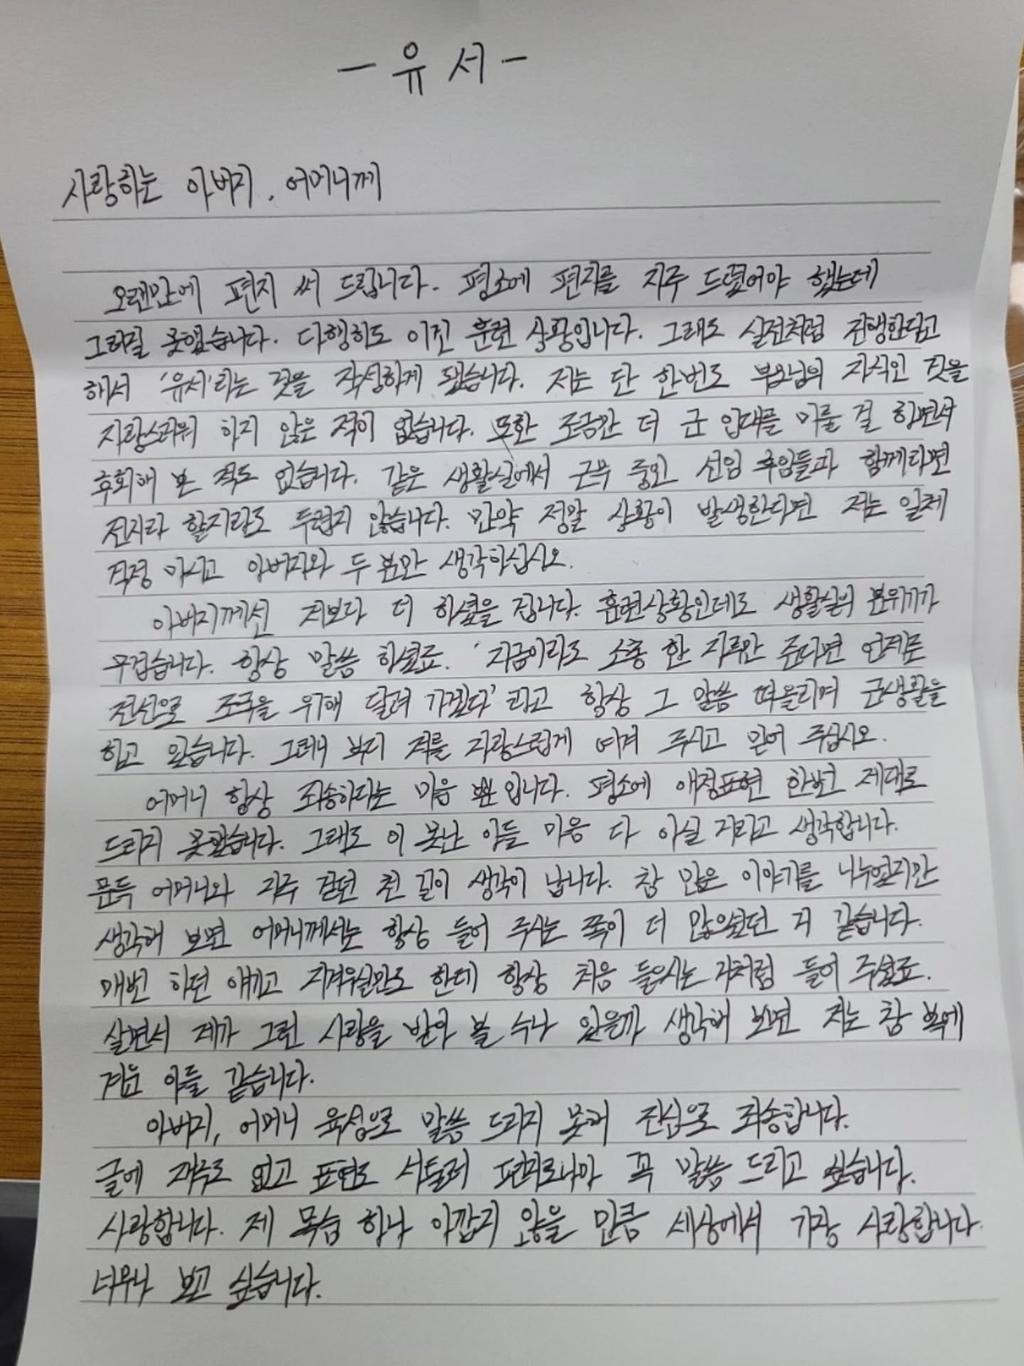 - 유서 -
사랑하는 아버지, 어머니께
오랜만에 편지 써 드립니다. 평소에 편지를 자주 드렸어야 했는데
그러질 못했습니다. 다행히도 이건 훈련 상황입니다. 그래도 실전처럼 진행한다고
해서 '유서'라는 것을 작성하게 됐습니다. 저는 단 한번도 부모님의 자식인 것을
자랑스러워 하지 않은 적이 없습니다. 또한 조금만 더 군 입대를 미룰 걸 하면서
후회해 본 적도 없습니다. 같은 생활실에서 근무 중인 선임 후임들과 함께라면
전사라 할지라도 두렵지 않습니다. 만약 정말 상황이 발생한다면 저는 일체
걱정 마시고 아버지와 두 분만 생각하십시오.
아버지께선 저보다 더 하셨을 겁니다. 훈련상황인데도 생활실의 분위기가
무겁습니다. 항상 말씀 하셨죠. '지금이라도 소총 한 자루만 준다면 언제든
전선으로 조국을 위해 달려 가겠다' 라고 항상 그 말씀 떠올리며 군생활을
하고 있습니다. 그러니 부디 저를 자랑스럽게 여겨 주시고 믿어 주십시오.
어머니 항상 죄송하다는 마음 뿐입니다. 평소에 애정표현 한번 제대로
드리지 못했습니다. 그래도 이 못난 아들 마음 다 아실 거라고 생각합니다.
문득 어머니와 자주 걷던 천 길이 생각이 납니다. 참 많은 이야기를 나누었지만
생각해 보면 어머니께서는 항상 들어 주시는 쪽이 더 많으셨던 거 같습니다.
매번 하던 얘기고 지겨우실만도 한데 항상 처음 들으시는 거처럼 들어 주셨죠.
살면서 제가 그런 사랑을 받아 볼 수나 있을까 생각해 보면 저는 참 복에
겨운 아들 같습니다.
아버지, 어머니 육성으로 말씀 드리지 못해 진심으로 죄송합니다.
글에 재주도 없고 표현도 서툴러 편지로나마 꼭 말씀 드리고 싶습니다.
사랑합니다. 제 목숨 하나 아깝지 않을 만큼 세상에서 가장 사랑합니다.
너무나 보고 싶습니다.